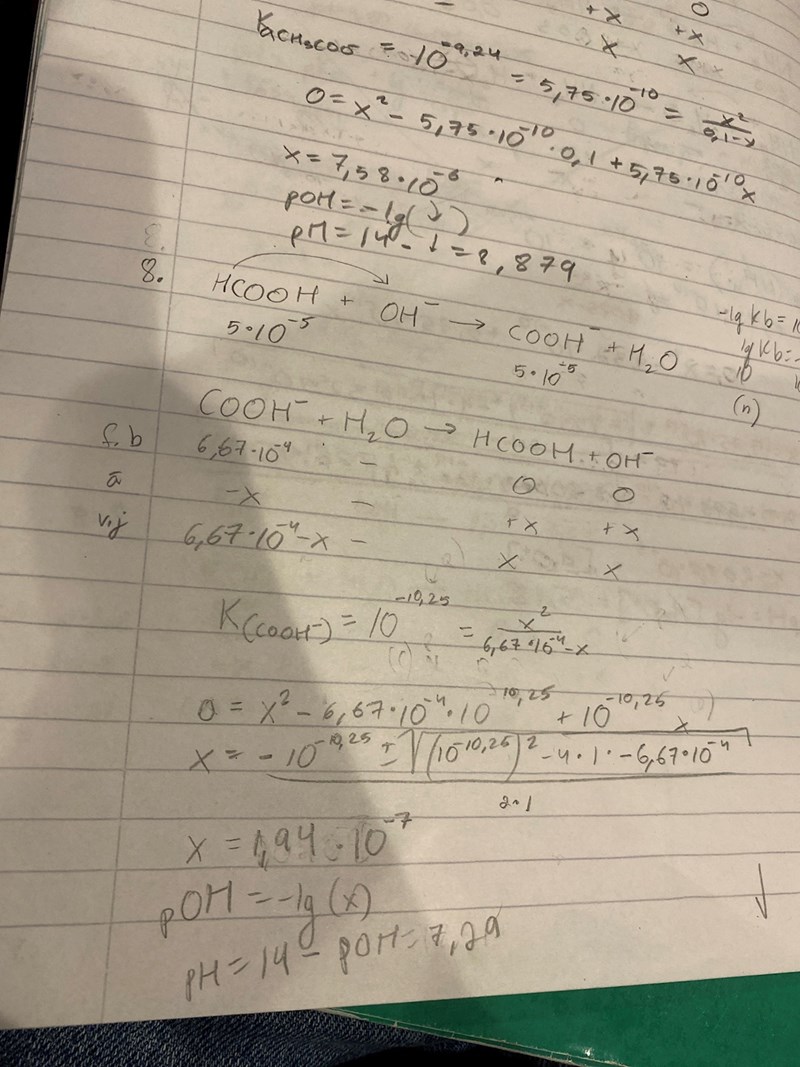 +x 0
x +x
x
K_aCH₃COO⁻ = 10^-9,24 = 5,75·10^-10 = x²/(0,1-x)
0 = x² - 5,75·10^-10·0,1 + 5,75·10^-10 x
x = 7,58·10^-6
pOH = -lg(↓)
pH = 14 - ↓ = 8,879
8. HCOOH + OH⁻ → COOH⁻ + H₂O
5·10^-5 5·10^-5
-lg Kb = 10
lg Kb = -
10
(n)
COOH⁻ + H₂O → HCOOH + OH⁻
f.b 6,67·10^-4 - 0 0
ä -x - +x +x
v.j 6,67·10^-4-x - x x
K(COOH⁻) = 10^-10,25 = x²/(6,67·10^-4-x)
0 = x² - 6,67·10^-4·10^-10,25 + 10^-10,25 x
x = (-10^-10,25 ± √((10^-10,25)² - 4·1·-6,67·10^-4))/(2·1)
x = 1,94·10^-7
pOH = -lg(x)
pH = 14 - pOH = 7,29